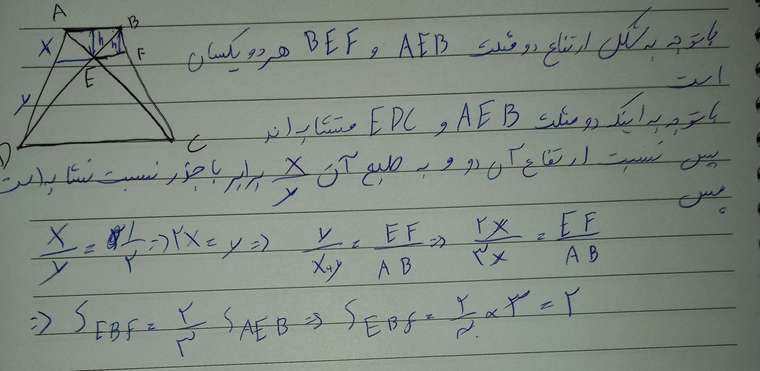 A B
X h h F
E
y
D C
باتوجه به شکل ارتفاع دو مثلث AEB و BEF هر دو یکسان
است
باتوجه به اینکه دو مثلث AEB و EDC متشابه اند
پس نسبت ارتفاع آن دو و به طبع آن X/y برابر با جذر نسبت تشابه است
پس
X/y = ۱/۲ => ۲X = y => y/x+y = EF/AB => ۲x/۳x = EF/AB
=> S EBF = ۲/۳ S AEB => S EBF = ۲/۳ × ۳ = ۲